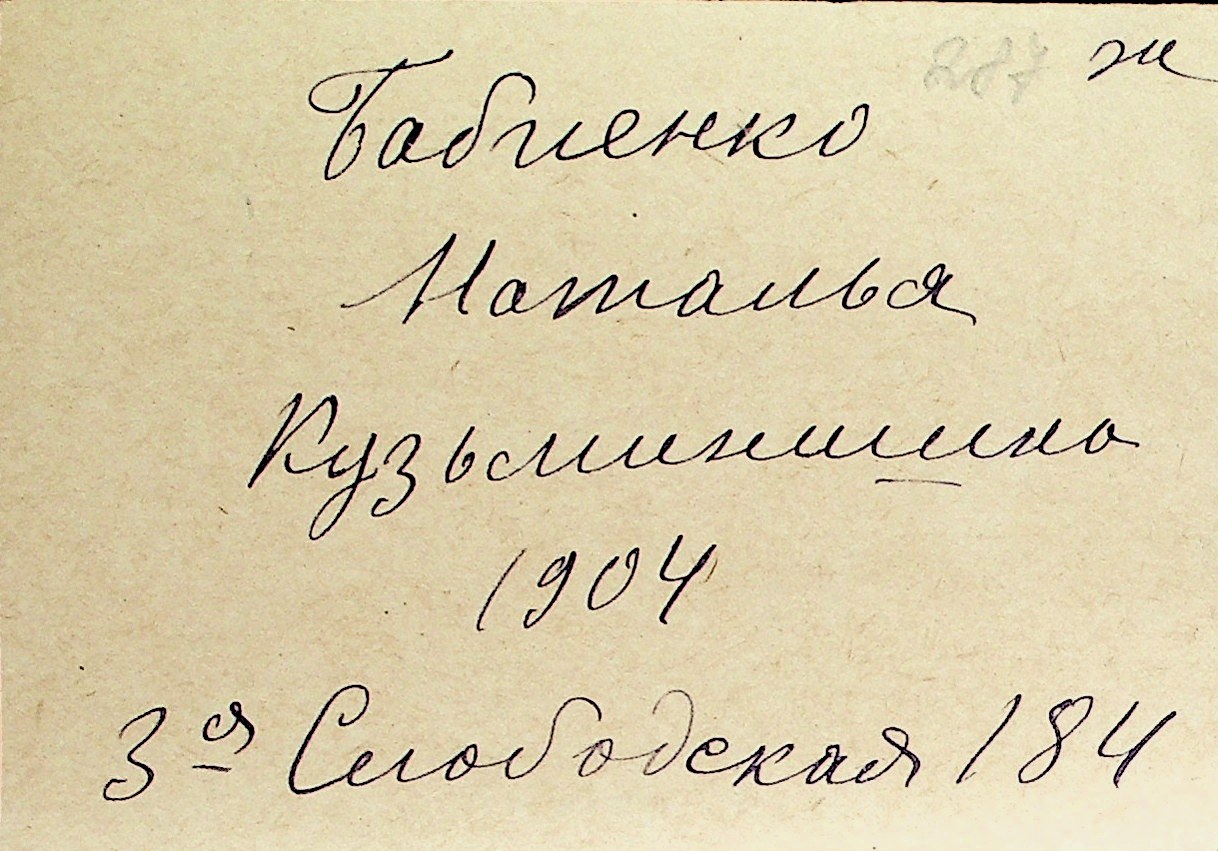 287 ж
Бабиенко
Наталья
Кузьминишна
1904
3ая Слободская 184